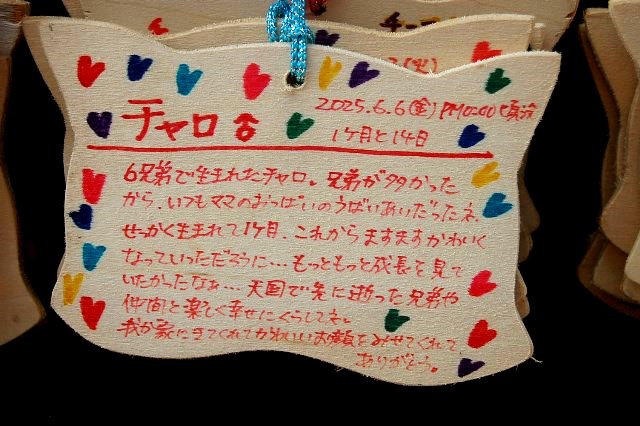 チャロ♂
2025.6.6(金)PM10:00頃
1ヶ月と14日
6兄弟で生まれたチャロ。兄弟が多かった
から、いつもママのおっぱいのうばいあいだったネ。
せっかく生まれて1ヶ月、これからますますかわいく
なっていっただろうに…もっともっと成長を見て
いたかったなぁ…天国で先に逝った兄弟や
仲間と楽しく幸せにくらしてネ。
我が家にきてくれてかわいいお顔をみせてくれて、
ありがとう。